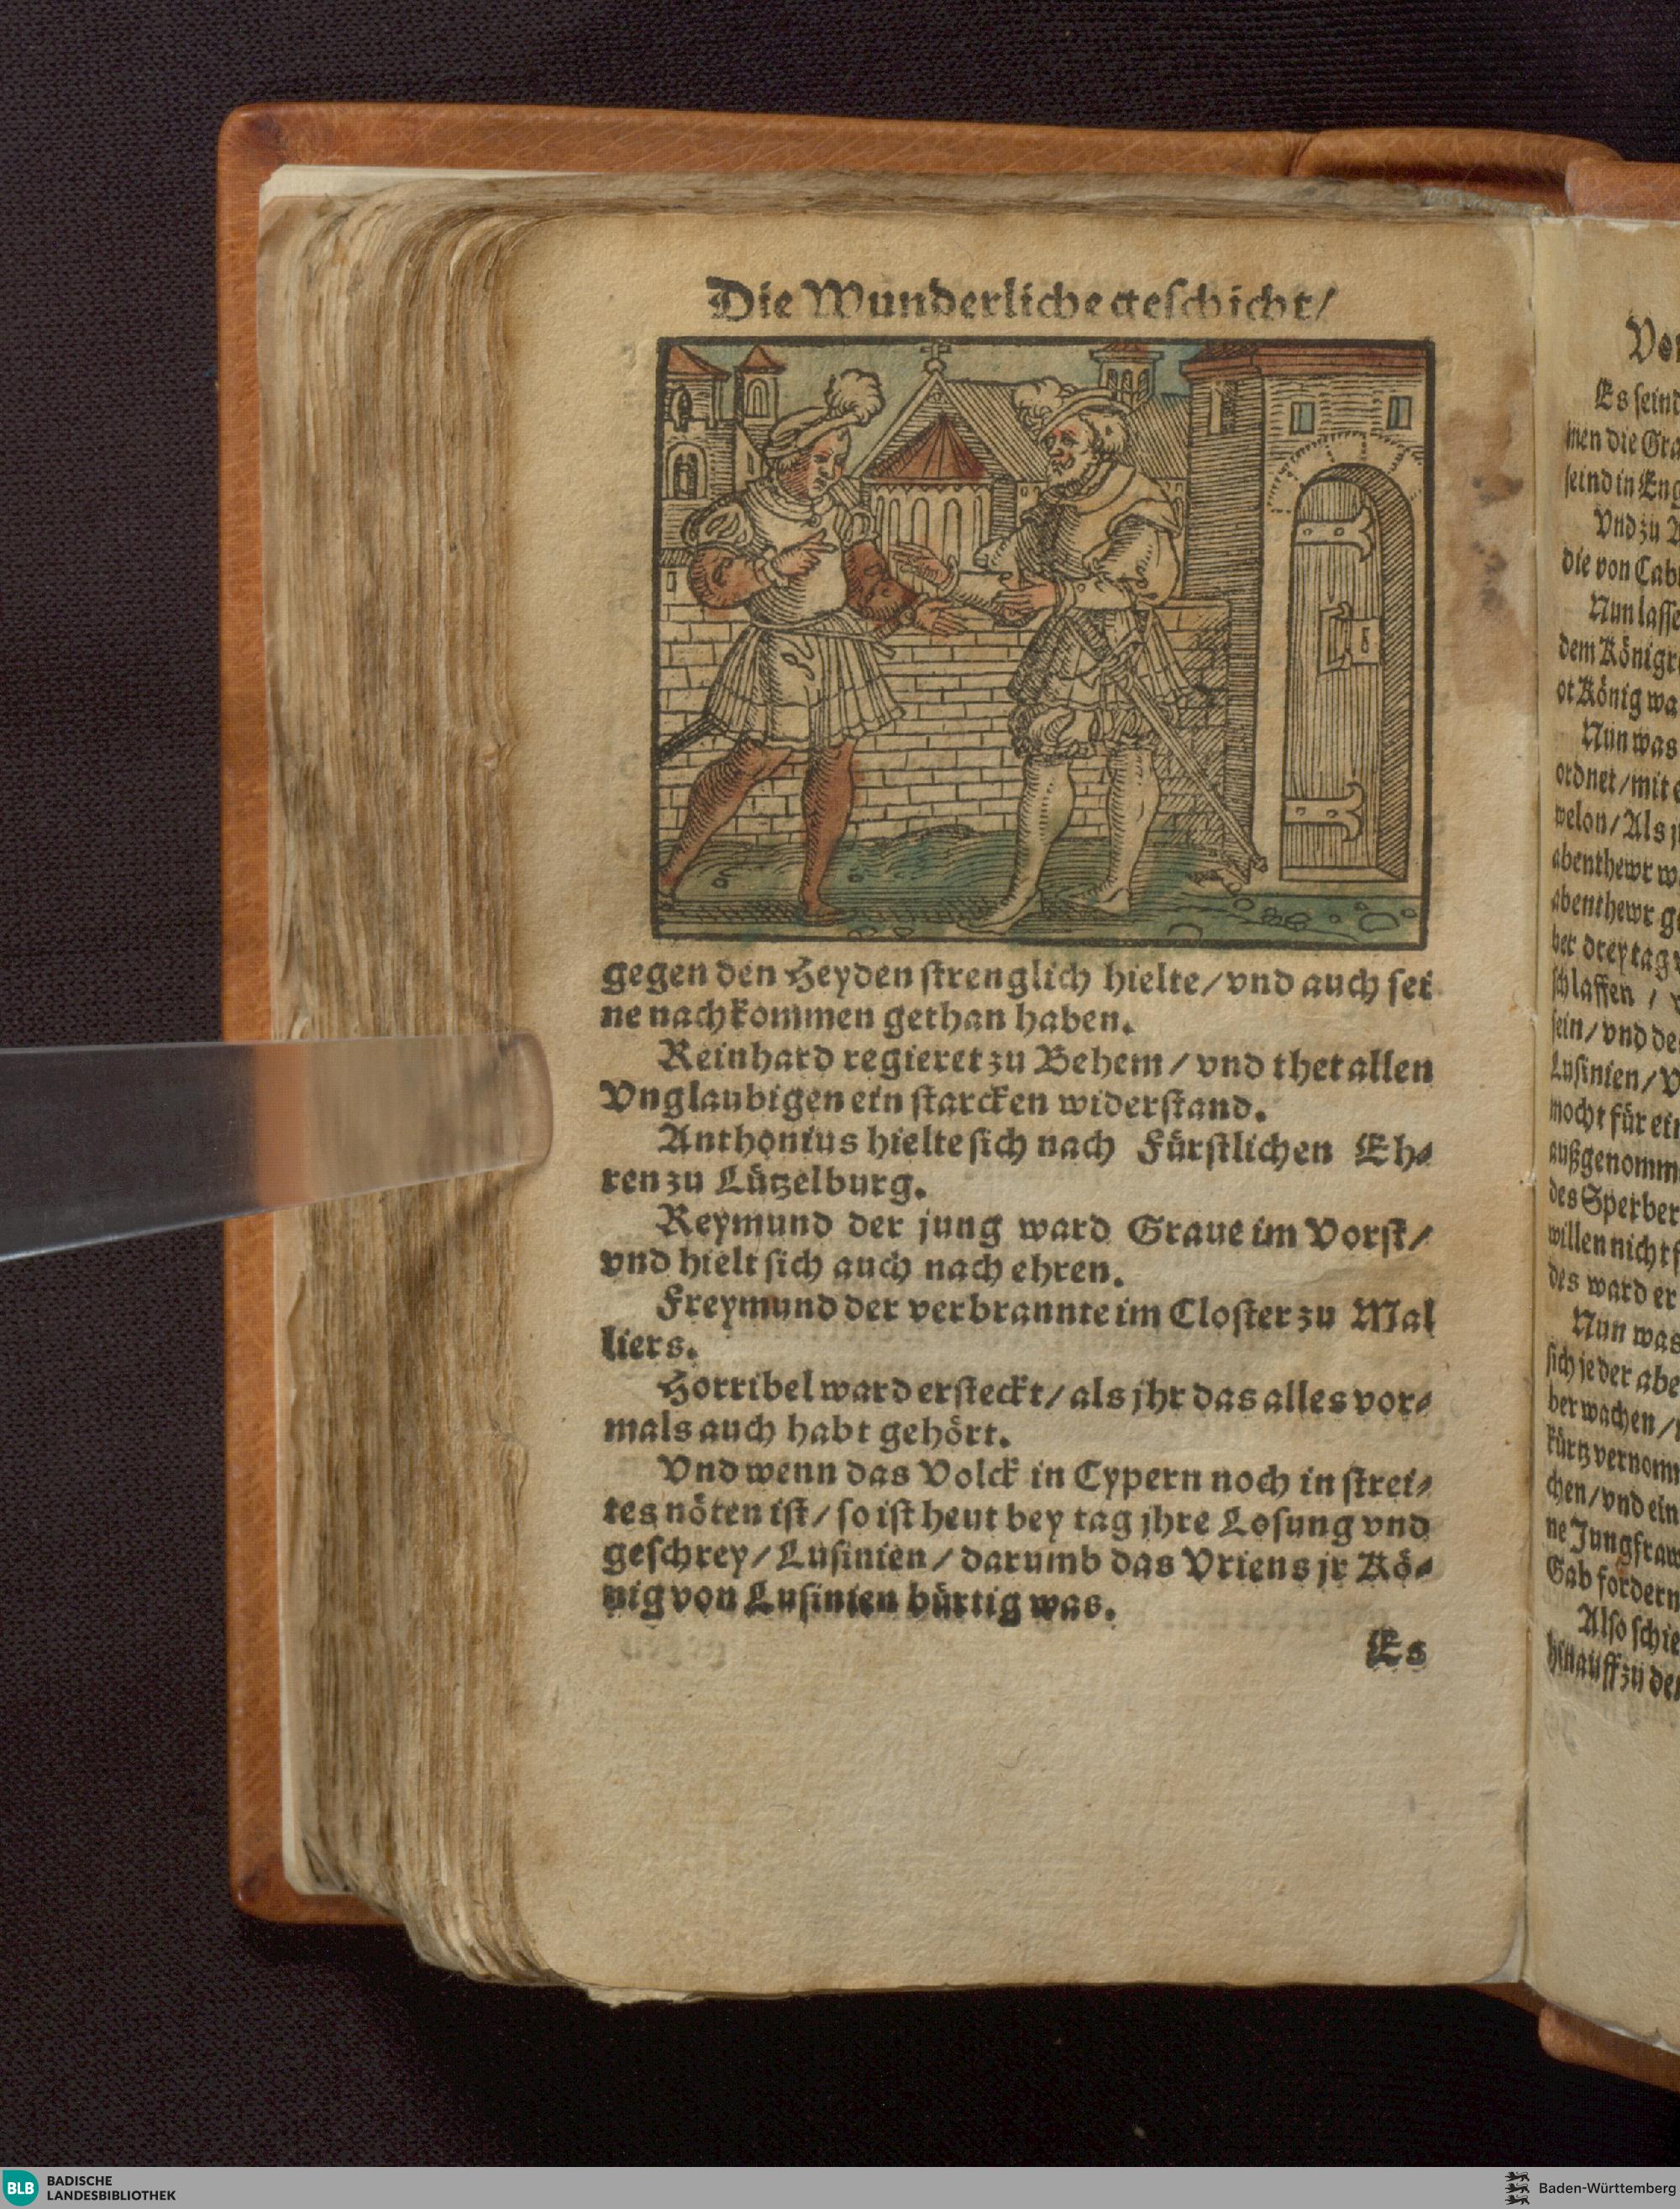 Die Wunderliche geschicht/
gegen den Heyden strenglich hielte/vnd auch sei
ne nachkommen gethan haben.
Reinhard regieret zu Behem/vnd thet allen
Vnglaubigen ein starcken widerstand.
Anthonius hielte sich nach Fürstlichen Eh-
ren zu Lützelburg.
Reymund der jung ward Graue im Vorst/
vnd hielt sich auch nach ehren.
Freymund der verbrannte im Closter zu Mal
liers.
Horribel ward ersteckt/als jhr das alles vor-
mals auch habt gehört.
Vnd wenn das Volck in Cypern noch in strei-
tes nöten ist/so ist heut bey tag jhre Losung vnd
geschrey/Lusinien/darumb das Vriens jr Kö-
nig von Lusinien bürtig was.
Es
Es seind
men die Gra
seind in Eng
Vnd zu
die von Cab
Nun lasse
dem Königr
ot König wa
Nun was
ordnet/mit
welon/Als
abenthewr w
abenthewr g
ber drey tag
schlaffen/
sein/vnd de
Lusinien/V
mocht für ein
außgenomm
des Sperber
willen nicht
des ward er
Nun was
sich jeder abe
ber wachen/
kürtz vernom
chen/vnd ein
ne Jungfraw
Gab fordern
Also schie
hinauff zu de
BLB BADISCHE
LANDESBIBLIOTHEK
Baden-Württemberg